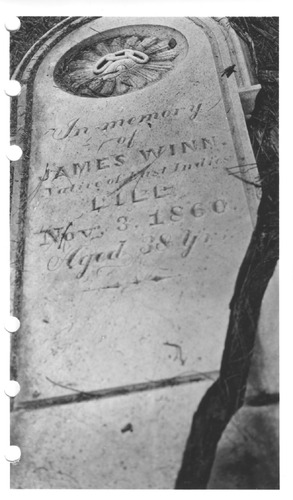 In memory
of
JAMES WINN.
Native of East Indies
DIED
Nov. 3. 1860.
Aged 38 Yrs.